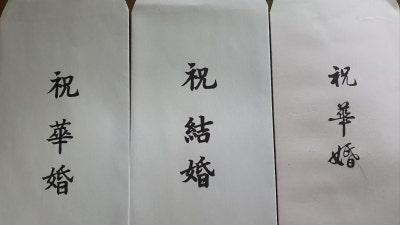 祝華婚
祝結婚
祝華婚